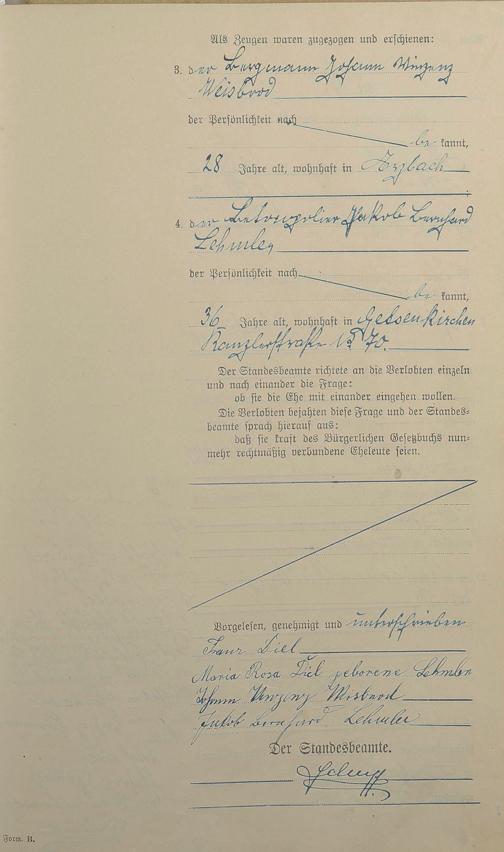 Als Zeugen waren zugezogen und erschienen:
3. der Bergmann Johann Vinzenz
Weisbrod
der Persönlichkeit nach
be kannt,
28 Jahre alt, wohnhaft in
4. der Betonpolier Jakob Bernhard
Lehmler
der Persönlichkeit nach
be kannt,
36 Jahre alt, wohnhaft in Gelsenkirchen
Kanzlerstraße № 70.
Der Standesbeamte richtete an die Verlobten einzeln
und nach einander die Frage:
ob sie die Ehe mit einander eingehen wollen.
Die Verlobten bejahten diese Frage und der Standes=
beamte sprach hierauf aus:
daß sie kraft des Bürgerlichen Gesetzbuchs nun=
mehr rechtmäßig verbundene Eheleute seien.
Vorgelesen, genehmigt und unterschrieben
Franz Diel
Maria Rosa Diel geborene Lehmler
Johann Vinzenz Weisbrod
Jakob Bernhard Lehmler
Der Standesbeamte.
Form. B.